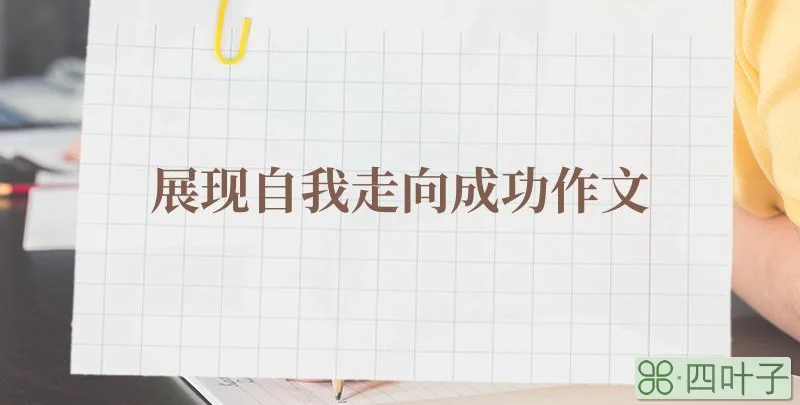 展现自我走向成功作文
四叶子